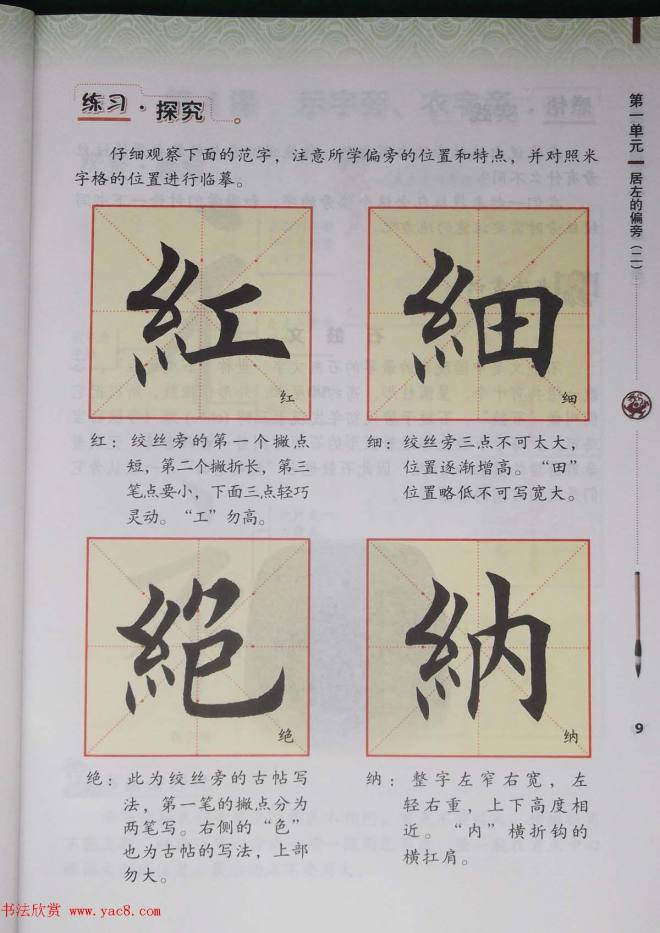 练习·探究
仔细观察下面的范字，注意所学偏旁的位置和特点，并对照米
字格的位置进行临摹。
紅
红
細
细
红：绞丝旁的第一个撇点
短，第二个撇折长，第三
笔点要小，下面三点轻巧
灵动。“工”勿高。
细：绞丝旁三点不可太大，
位置逐渐增高。“田”
位置略低不可写宽大。
絕
绝
納
纳
绝：此为绞丝旁的古帖写
法，第一笔的撇点分为
两笔写。右侧的“色”
也为古帖的写法，上部
勿大。
纳：整字左窄右宽，左
轻右重，上下高度相
近。“内”横折钩的
横扛肩。
第一单元
居左的偏旁（二）
9
书法欣赏 www.yac8.com